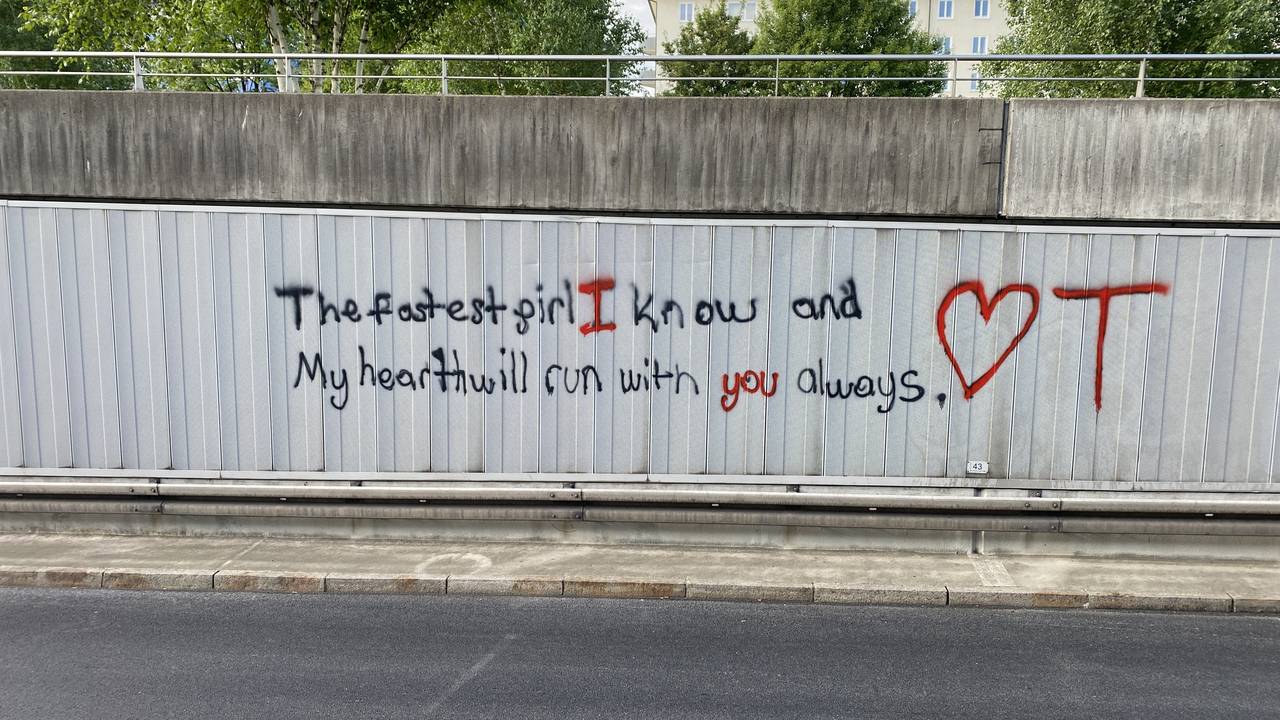 The fastest girl I know and
My heart will run with you always. ♡ T
43